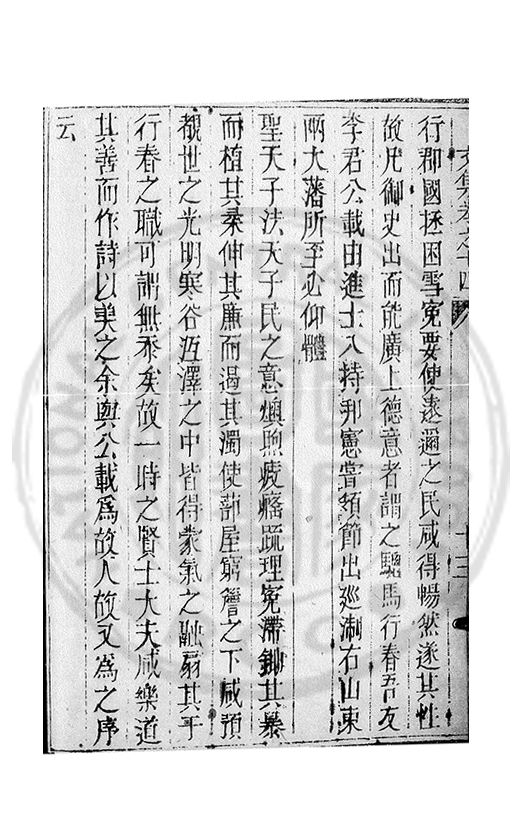 文集卷之十四
行郡國拯困雪寃要使遠邇之民咸得暢然遂其性
故凡御史出而能廣上德意者謂之驄馬行春吾友
李君公載由進士入持邦憲嘗領節出廵淛右山東
兩大藩所至必仰體
聖天子法天子民之意燠煦疲癃疏理寃滯鋤其暴
而植其柔伸其廉而遏其濁使蔀屋窮簷之下咸預
覩世之光明寒谷沍澤之中皆得蒙氣之融扇其于
行春之職可謂無忝矣故一時之賢士大夫咸樂道
其善而作詩以美之余與公載爲故人故又為之序
云